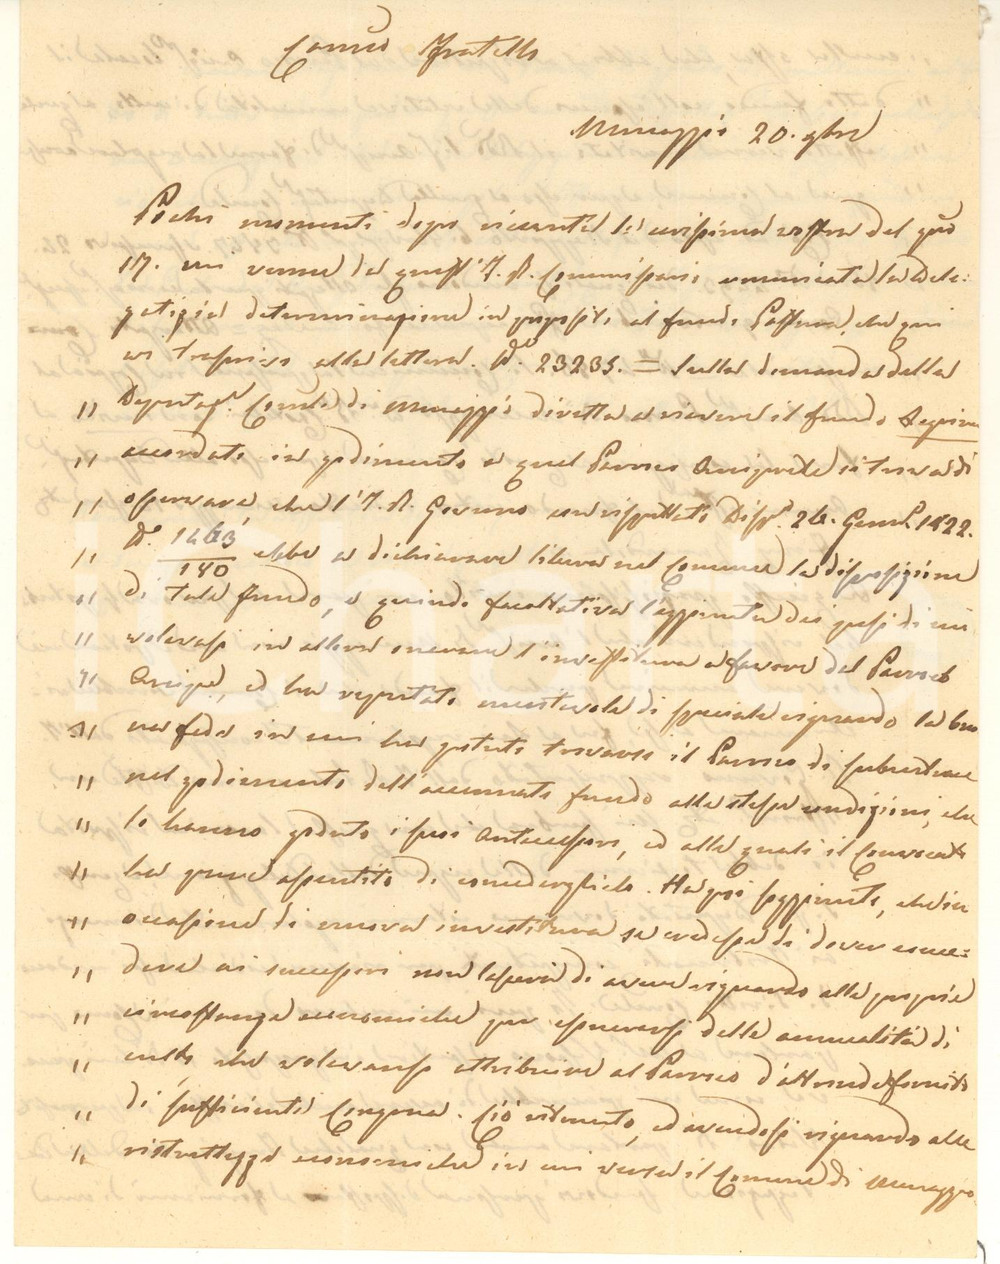 Carmo Fratello
Menaggio 20. 9bre
Pochi momenti dopo ricevuta la carissima vostra del gno
17. mi venne da quest'I. R. Commissario comunicata la Dele:
gatizia determinazione in proposito al fondo Pastura, che qui
vi trascrivo alla lettera. No. 23235. = Sulla domanda della
" Deputaze. Comle. di Menaggio diretta a riavere il fondo
" accordato in godimento a quel Parroco si trova di
" osservare che l'I. R. Governo con rispettato Disp. 26. Genn. 1822.
" No. 1463/140 ebbe a dichiarare libera nel Comune la disposizione
" di tale fondo, e quindi facoltativa l'aggiunta dei pesi di cui
" volevasi in allora onerare l'investitura a favore del Parroco
" ed ha reputato meritevole di speciale riguardo la buo
" na fede in cui ha potuto trovarsi il Parroco di subentrare
" nel godimento dell'accennato fondo alle stesse condizioni, che
" lo hanno goduto i suoi Antecessori, ed alle quali il Convocato
" ha pure assentito di concederglielo. Ha poi soggiunto, che in
" occasione di nuova investitura se credesse di dover conce=
" dere ai successori non lasciasi di avere riguardo alle proprie
" circostanze economiche per esonerarsi delle annualità di
" culto che volevansi attribuire al Parroco d'altronde fornito
" di sufficiente Congrua. Ciò ritenuto, ed avendosi riguardo alle
" ristrettezze economiche in cui versa il Comune di Menaggio
iCharta